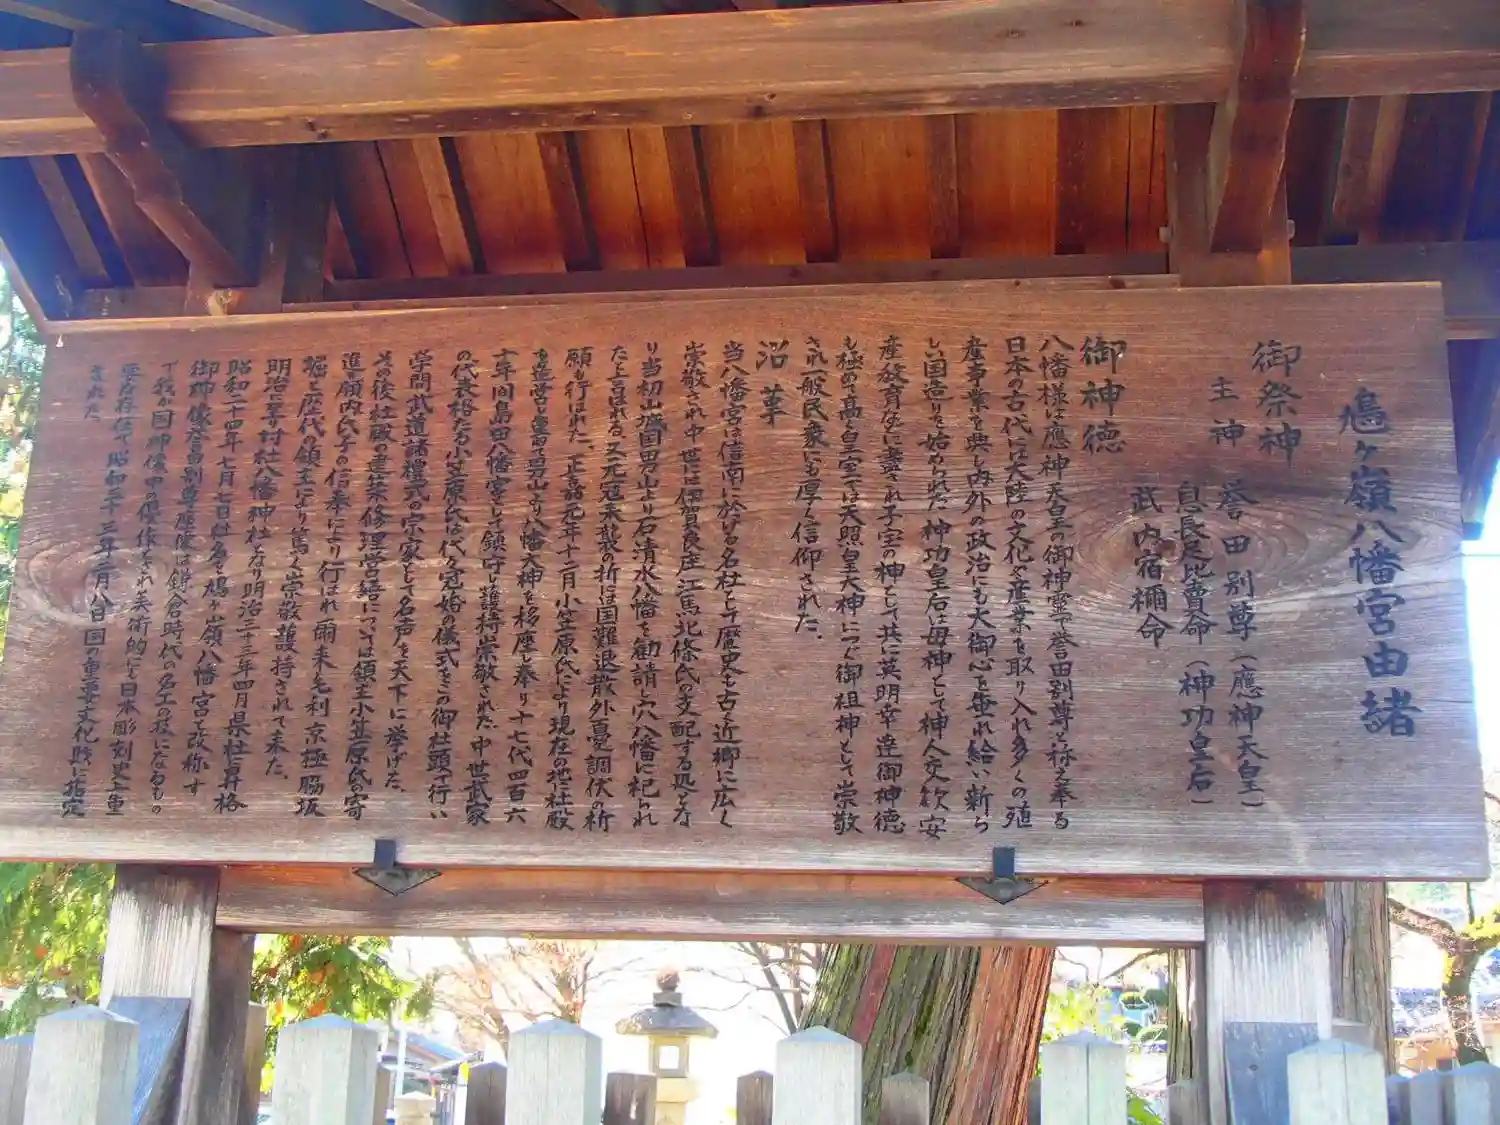 鳩ヶ嶺八幡宮由緒
御祭神
主神　誉田別尊（應神天皇）
息長足比賣命（神功皇后）
武内宿禰命
御神徳
八幡様は應神天皇の御神霊で誉田別尊と称え奉る
日本の古代には大陸の文化や産業を取り入れ多くの殖
産事業を興し内外の政治にも大御心を垂れ給い新ら
しい国造りを始められた神功皇后は母神として神人交歓安
産發育などに盡され子宝の神として共に英明幸運御神徳
も極めて高く皇室では天照皇大神につぐ御祖神として崇敬
され一般民衆にも厚く信仰された。
沿革
当八幡宮は信南に於ける名社として歴史も古く近郷に広く
崇敬され中世には伊賀良庄江馬北條氏の支配する処とな
り当初山城国男山より石清水八幡を勧請し穴八幡に祀られ
たと言はれる。又元冠来襲の折には国難退散外憂調伏の祈
願も行はれた。正嘉元年十二月小笠原氏により現在の地に社殿
を造営し重ねて男山より八幡大神を移座し奉り十七代四百六
十年間島田八幡宮として鎮守し護持崇敬された。中世武家
の代表格たる小笠原氏は代々冠婚の儀式をこの御社頭で行い
学問武道諸禮式の宗家として名声を天下に挙げた。
その後社殿の建築修理営繕については領主小笠原氏の寄
進を願内氏子の信奉により行はれ爾来毛利京極脇坂
堀と歴代の領主により篤く崇敬護持されて来た。
明治に至り村社八幡神社となり明治三十三年四月県社昇格
昭和二十四年七月七日社名を鳩ヶ嶺八幡宮と改称す
御神像誉田別尊座像は鎌倉時代の名工の技になるもの
で我が国神像中の優作とされ美術的にも日本彫刻史上重
要な存在で昭和二十三年二月八日国の重要文化財に指定
された。